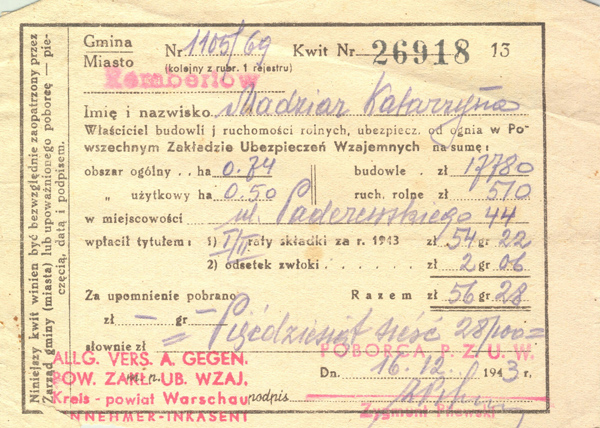 Niniejszy kwit winien być bezwzględnie zaopatrzony przez
Zarząd gminy (miasta) lub upoważnionego poborcę — pie-
częcią, datą i podpisem.
Gmina
Miasto
Nr 1105/69 Kwit Nr 26918 13
(kolejny z rubr. 1 rejestru)
Rembertów
Imię i nazwisko Madziar Katarzyna
Właściciel budowli j ruchomości rolnych, ubezpiecz. od ognia w Po-
wszechnym Zakładzie Ubezpieczeń Wzajemnych na sumę:
obszar ogólny . ha 0.74 budowle . zł 17780
„ użytkowy ha 0.50 ruch. rolne zł 510
w miejscowości ul. Paderewskiego 44
wpłacił tytułem: 1) I/II raty składki za r. 1943 zł 54 gr 22
2) odsetek zwłoki . . . . . . zł 2 gr 06
Za upomnienie pobrano Razem zł 56 gr 28
zł — gr —
słownie zł = Pięćdziesiąt sześć 28/100 =
ALLG. VERS. A. GEGEN.
POW. ZAKŁ. UB. WZAJ.
Kreis - powiat Warschau
NNEHMER-INKASENT
POBORCA P. Z. U. W.
Dn. 16.12. 1943 r.
podpis
Zygmunt